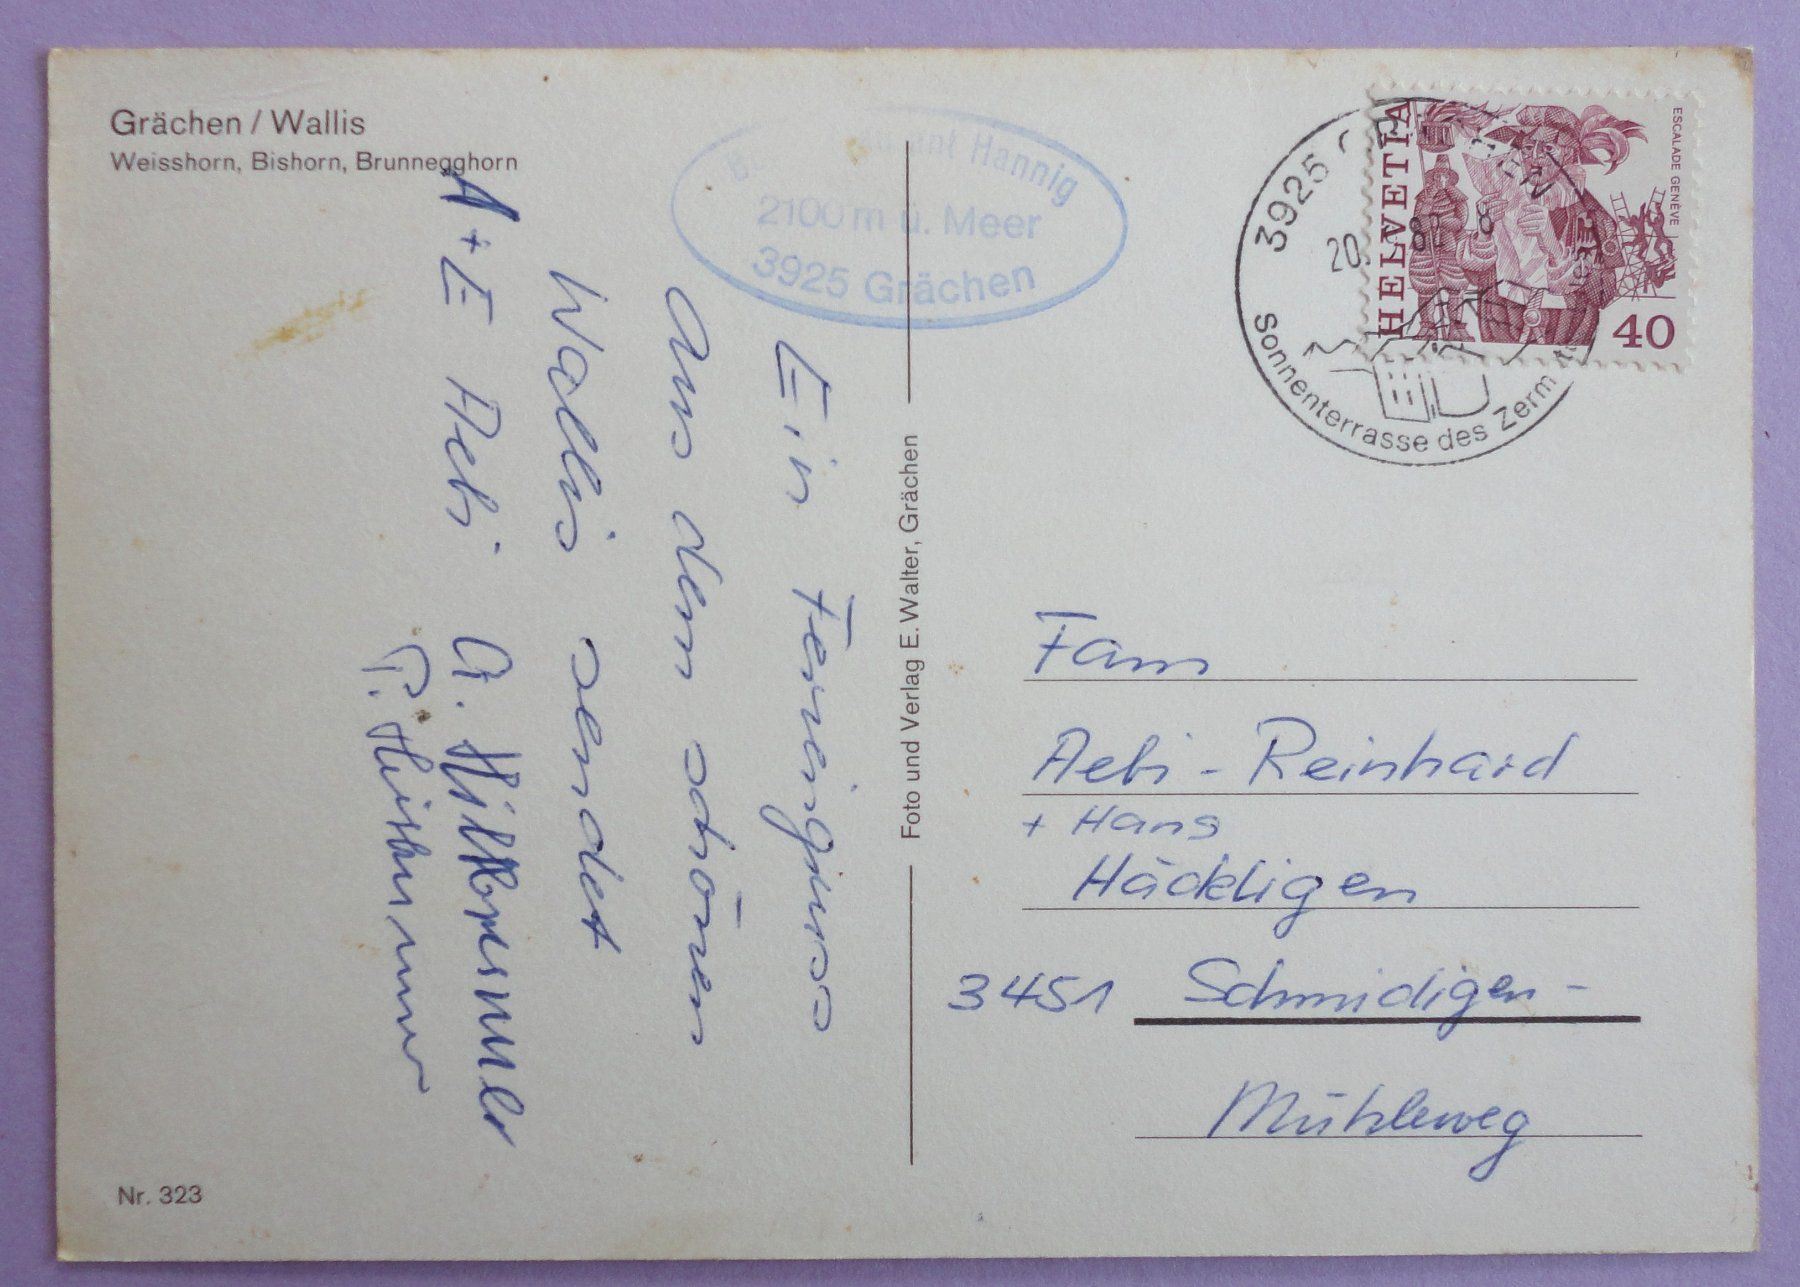 Grächen / Wallis
Weisshorn, Bishorn, Brunnegghorn
Hannig
2100 m ü. Meer
3925 Grächen
3925
20
Sonnenterrasse des
HELVETIA
ESCALADE GENÈVE
40
Ein Feriengruss
aus dem schönen
Wallis sendet
A + E Aebi
Foto und Verlag E. Walter, Grächen
Fam
Aebi - Reinhard
+ Hans
Häckligen
3451 Schmidigen -
Mühleweg
Nr. 323